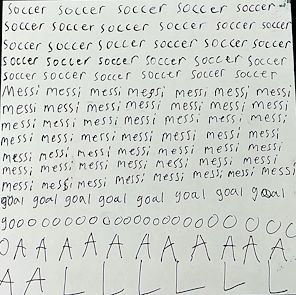 soccer soccer soccer soccer soccer
soccer soccer soccer soccer soccer soccer
soccer soccer soccer soccer soccer soccer
soccer soccer soccer soccer soccer soccer
soccer soccer soccer soccer soccer soccer
Messi messi messi messi messi messi messi
messi messi messi messi messi messi messi
messi messi messi messi messi messi messi
messi messi messi messi messi messi messi
messi messi messi messi messi messi messi
messi messi messi messi messi messi messi
messi messi messi messi messi messi messi
goal goal goal goal goal goal goal goal
goooooooooooooooooooooo
OAAAAAAAAAA
AALLLLLLL